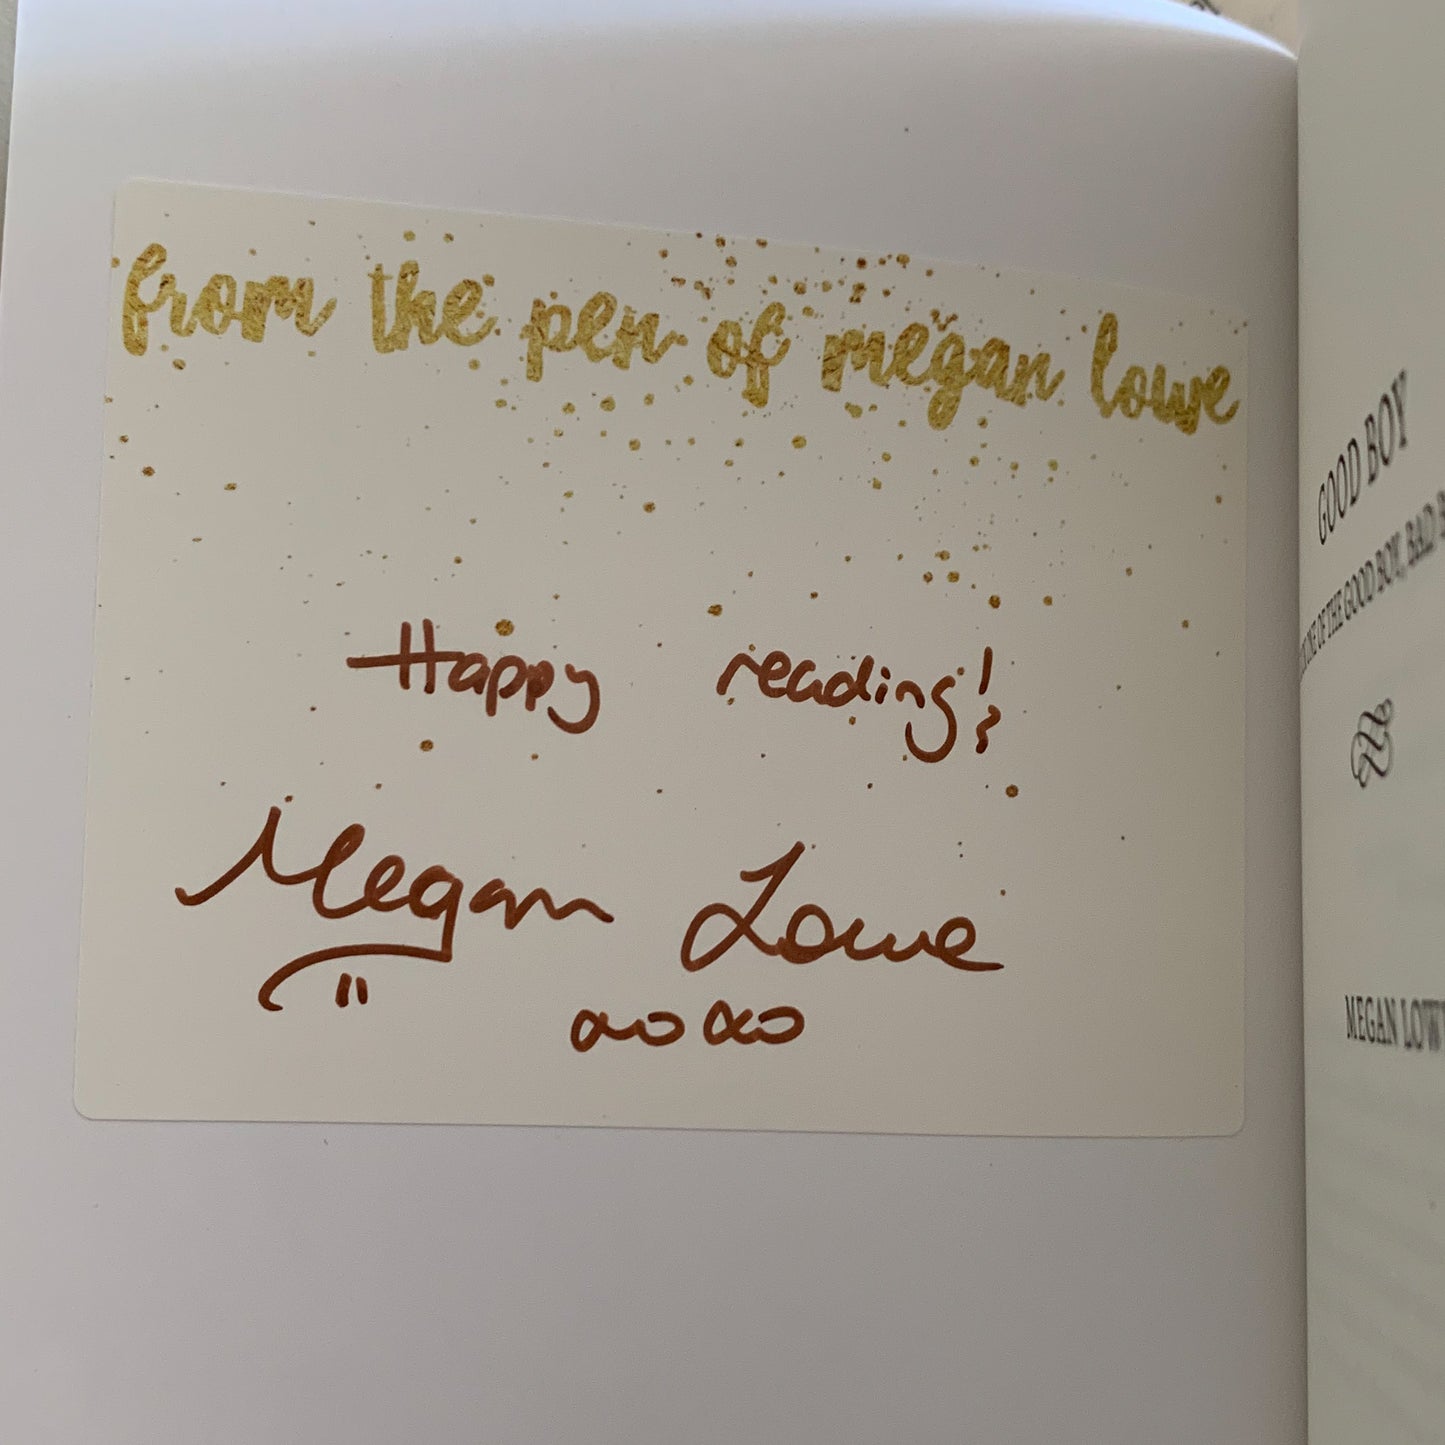 from the pen of megan lowe
Happy reading!
Megan Lowe
xoxo
GOOD BOY
OF THE GOOD BOY, BAD
MEGAN LOWE